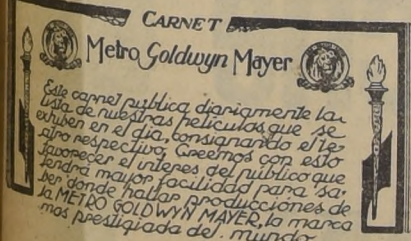 CARNET
Metro Goldwyn Mayer
Este carnet publica diariamente la
lista de nuestras peliculas que se
exhiben en el dia, consignando el te-
atro respectivo, Creemos con esto
favorecer el interes del publico que
tendrá mayor facilidad para sa-
ber donde hallar producciones de
la METRO GOLDWYN MAYER, la marca
mas prestigiada del mundo.